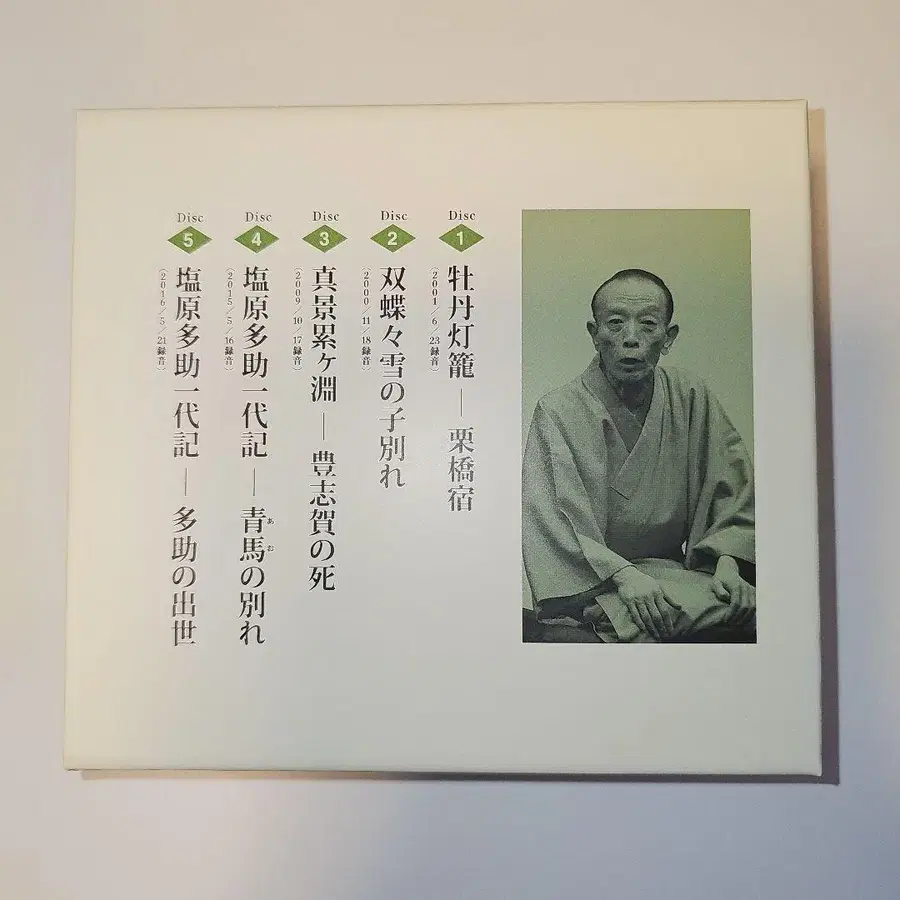 Disc
1
牡丹灯籠 ― 栗橋宿
(2001/6/23録音)
Disc
2
双蝶々雪の子別れ
(2000/11/18録音)
Disc
3
真景累ヶ淵 ― 豊志賀の死
(2009/10/17録音)
Disc
4
塩原多助一代記 ― 青馬の別れ
あお
(2015/5/16録音)
Disc
5
塩原多助一代記 ― 多助の出世
(2016/5/21録音)